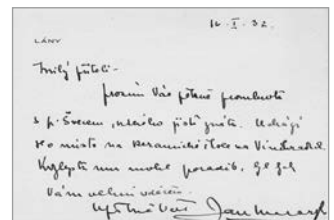 10. I. 32.
LÁNY
Milý příteli -
prosím Vás pěkně promluvte
s p. Švecem, kterého jistě znáte. Uchází
se o místo na keramické škole na Vinohradech.
Kdybyste mu mohl poradit,
Vám velmi vděčen.
Upřímně Váš Jan Masaryk